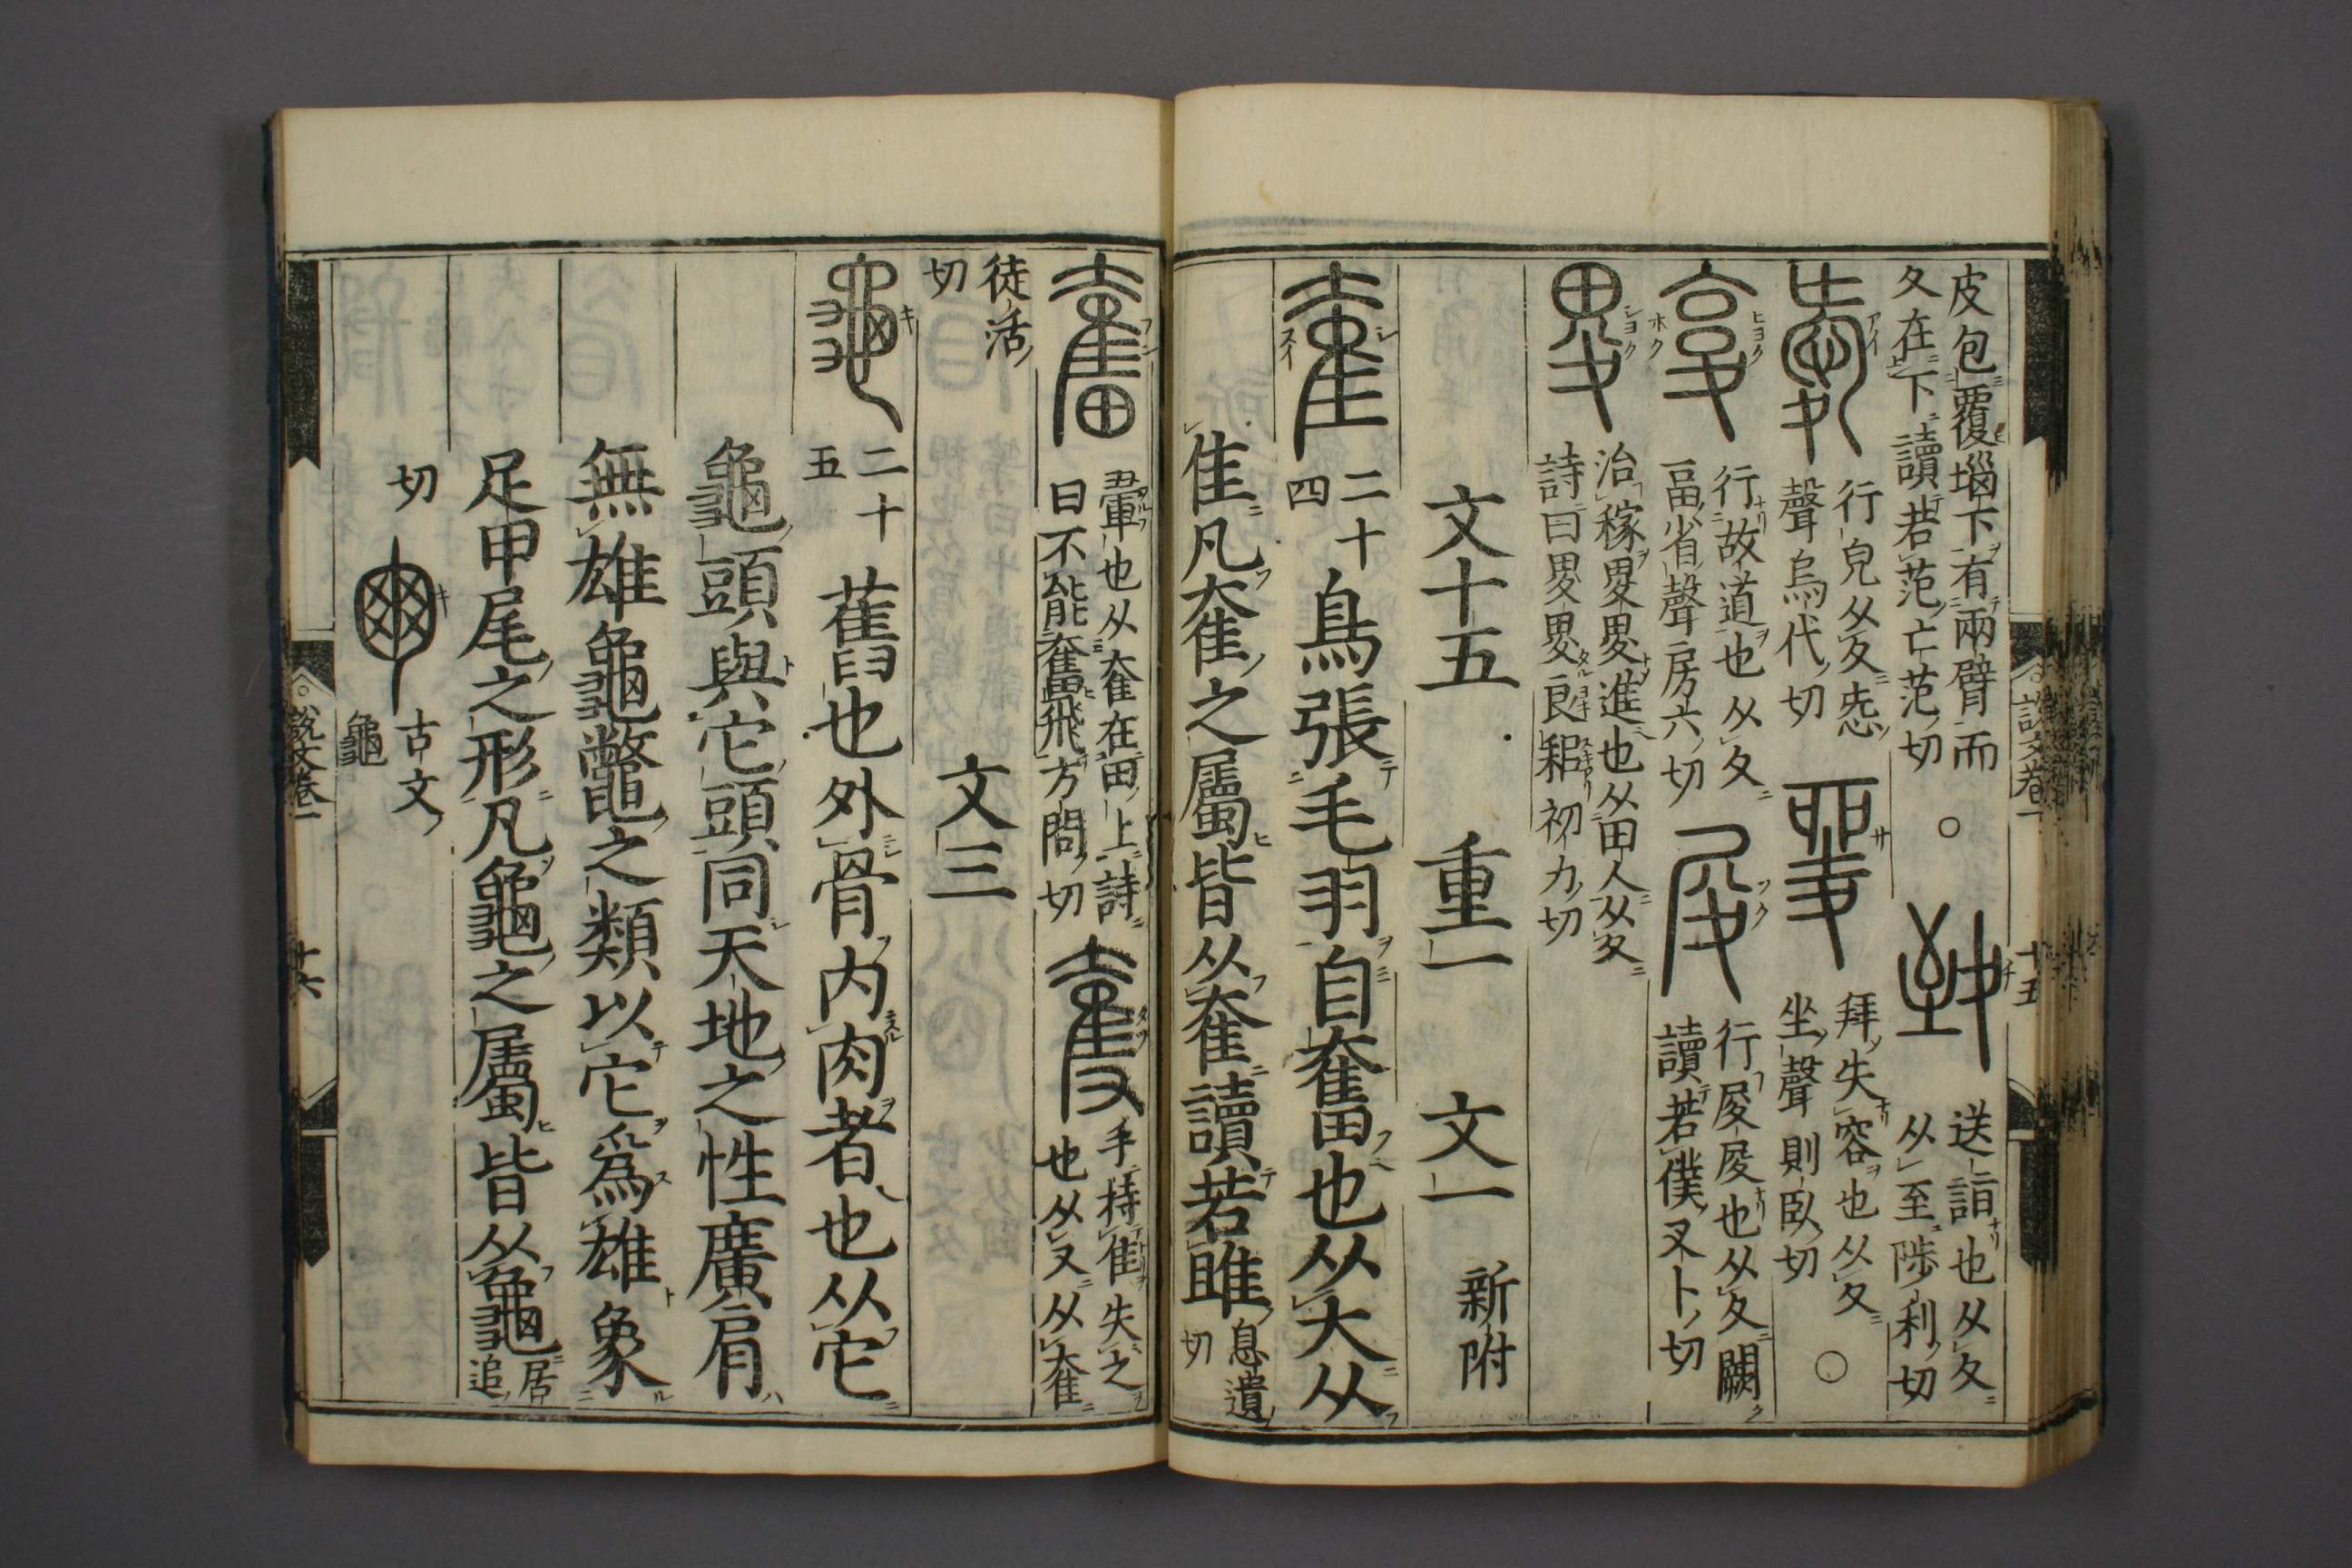 皮包覆堖下有兩臂而
夊在下讀若范亡范切
○
送詣也从夊
从至陟利切
行皃从夊㤅
聲烏代切
拜失容也从夊
坐聲則臥切
○
行故道也从夂
畐省聲房六切
行夋夋也从夂闕
讀若僕又卜切
治稼畟畟進也从田人从夊
詩曰畟畟良耜初力切
文十五 重一 文一 新附
二十四
鳥張毛羽自奮也从大从
隹凡奞之屬皆从奞讀若睢
息遺切
翬也从奞在田上詩
曰不能奮飛方問切
手持隹失之
也从又从奞
徒活切
文三
二十五
舊也外骨内肉者也从它
龜頭與它頭同天地之性廣肩
無雄龜鼈之類以它爲雄象
足甲尾之形凡龜之屬皆从龜
居追切
古文龜
說文卷一
十五
說文卷一
十六